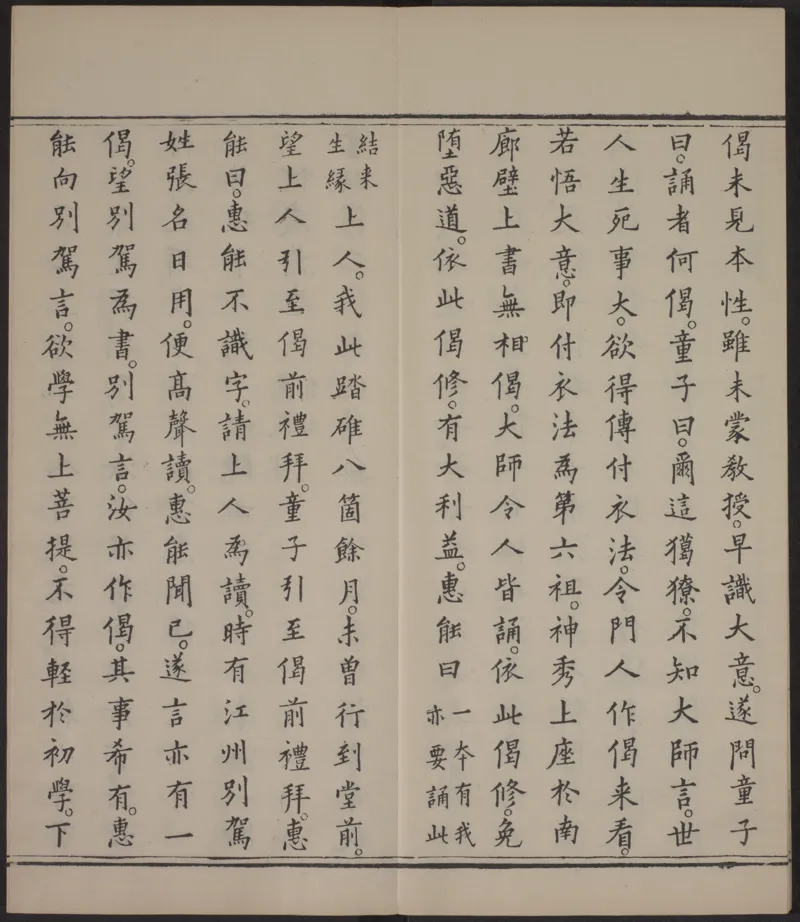 偈未見本性。雖未蒙教授。早識大意。遂問童子
曰。誦者何偈。童子曰。爾這獦獠。不知大師言。世
人生死事大。欲得傳付衣法。令門人作偈来看。
若悟大意。即付衣法為第六祖。神秀上座於南
廊壁上書無相偈。大師令人皆誦。依此偈修。免
堕惡道。依此偈修。有大利益。惠能曰 一本有我亦要誦此
結来生緣 上人。我此踏碓八箇餘月。未曾行到堂前。
望上人引至偈前禮拜。童子引至偈前禮拜。惠
能曰。惠能不識字。請上人為讀。時有江州別駕
姓張名日用。便髙聲讀。惠能聞已。遂言亦有一
偈。望別駕為書。別駕言。汝亦作偈。其事希有。惠
能向別駕言。欲學無上菩提。不得輕於初學。下